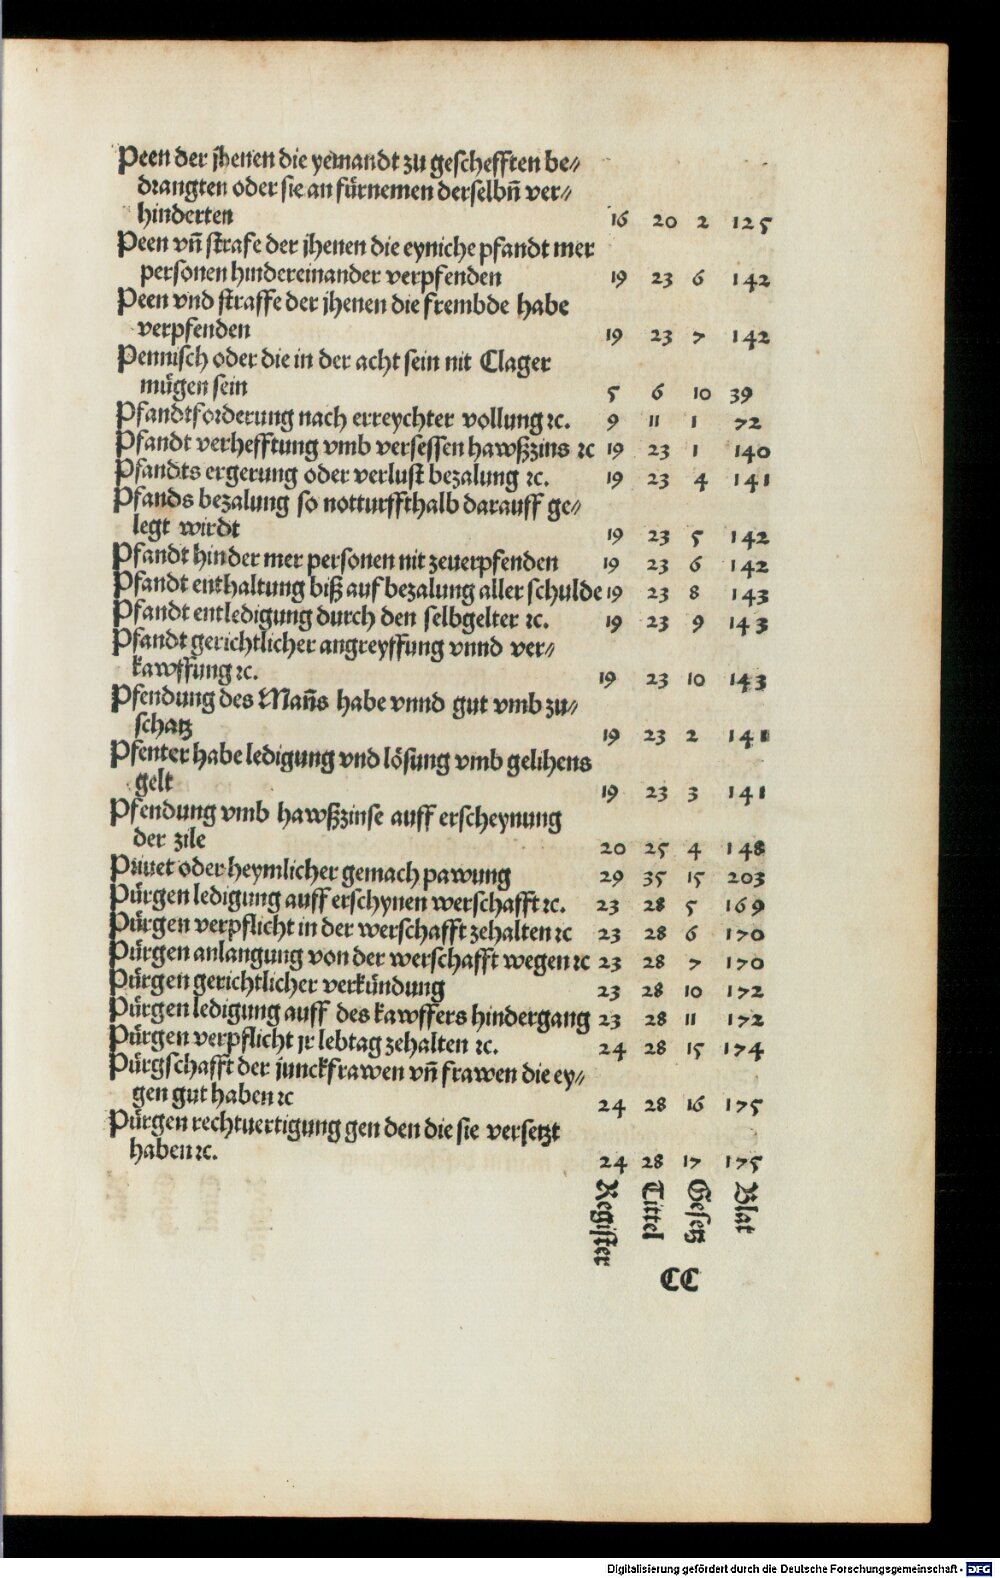 Peen der jhenen die yemandt zu geschefften be⸗
drangten oder sie an fürnemen derselbñ ver⸗
hinderten 16 20 2 125
Peen vñ strafe der jhenen die eyniche pfandt mer
personen hindereinander verpfenden 19 23 6 142
Peen vnd straffe der jhenen die frembde habe
verpfenden 19 23 7 142
Pennisch oder die in der acht sein nit Clager
mügen sein 5 6 10 39
Pfandtforderung nach erreychter vollung ⁊c. 9 11 1 72
Pfandt verhefftung vmb versessen hawßzins ⁊c 19 23 1 140
Pfandts ergerung oder verlust bezalung ⁊c. 19 23 4 141
Pfands bezalung so notturffthalb darauff ge⸗
legt wirdt 19 23 5 142
Pfandt hinder mer personen nit zeuerpfenden 19 23 6 142
Pfandt enthaltung biß auf bezalung aller schulde 19 23 8 143
Pfandt entledigung durch den selbgelter ⁊c. 19 23 9 143
Pfandt gerichtlicher angreyffung vnnd ver⸗
kawffung ⁊c. 19 23 10 143
Pfendung des Mañs habe vnnd gut vmb zu⸗
schatz 19 23 2 141
Pfenter habe ledigung vnd lösung vmb gelihens
gelt 19 23 3 141
Pfendung vmb hawßzinse auff erscheynung
der zile 20 25 4 148
Priuet oder heymlicher gemach pawung 29 35 15 203
Pürgen ledigung auff erschynen werschafft ⁊c. 23 28 5 169
Pürgen verpflicht in der werschafft zehalten ⁊c 23 28 6 170
Pürgen anlangung von der werschafft wegen ⁊c 23 28 7 170
Pürgen gerichtlicher verkündung 23 28 10 172
Pürgen ledigung auff des kawffers hindergang 23 28 11 172
Pürgen verpflicht jr lebtag zehalten ⁊c. 24 28 15 174
Pürgschafft der junckfrawen vñ frawen die ey⸗
gen gut haben ⁊c 24 28 16 175
Pürgen rechtuertigung gen den die sie versetzt
haben ⁊c. 24 28 17 175
Register Tittel Gesetz Blat
CC
Digitalisierung gefördert durch die Deutsche Forschungsgemeinschaft - DFG